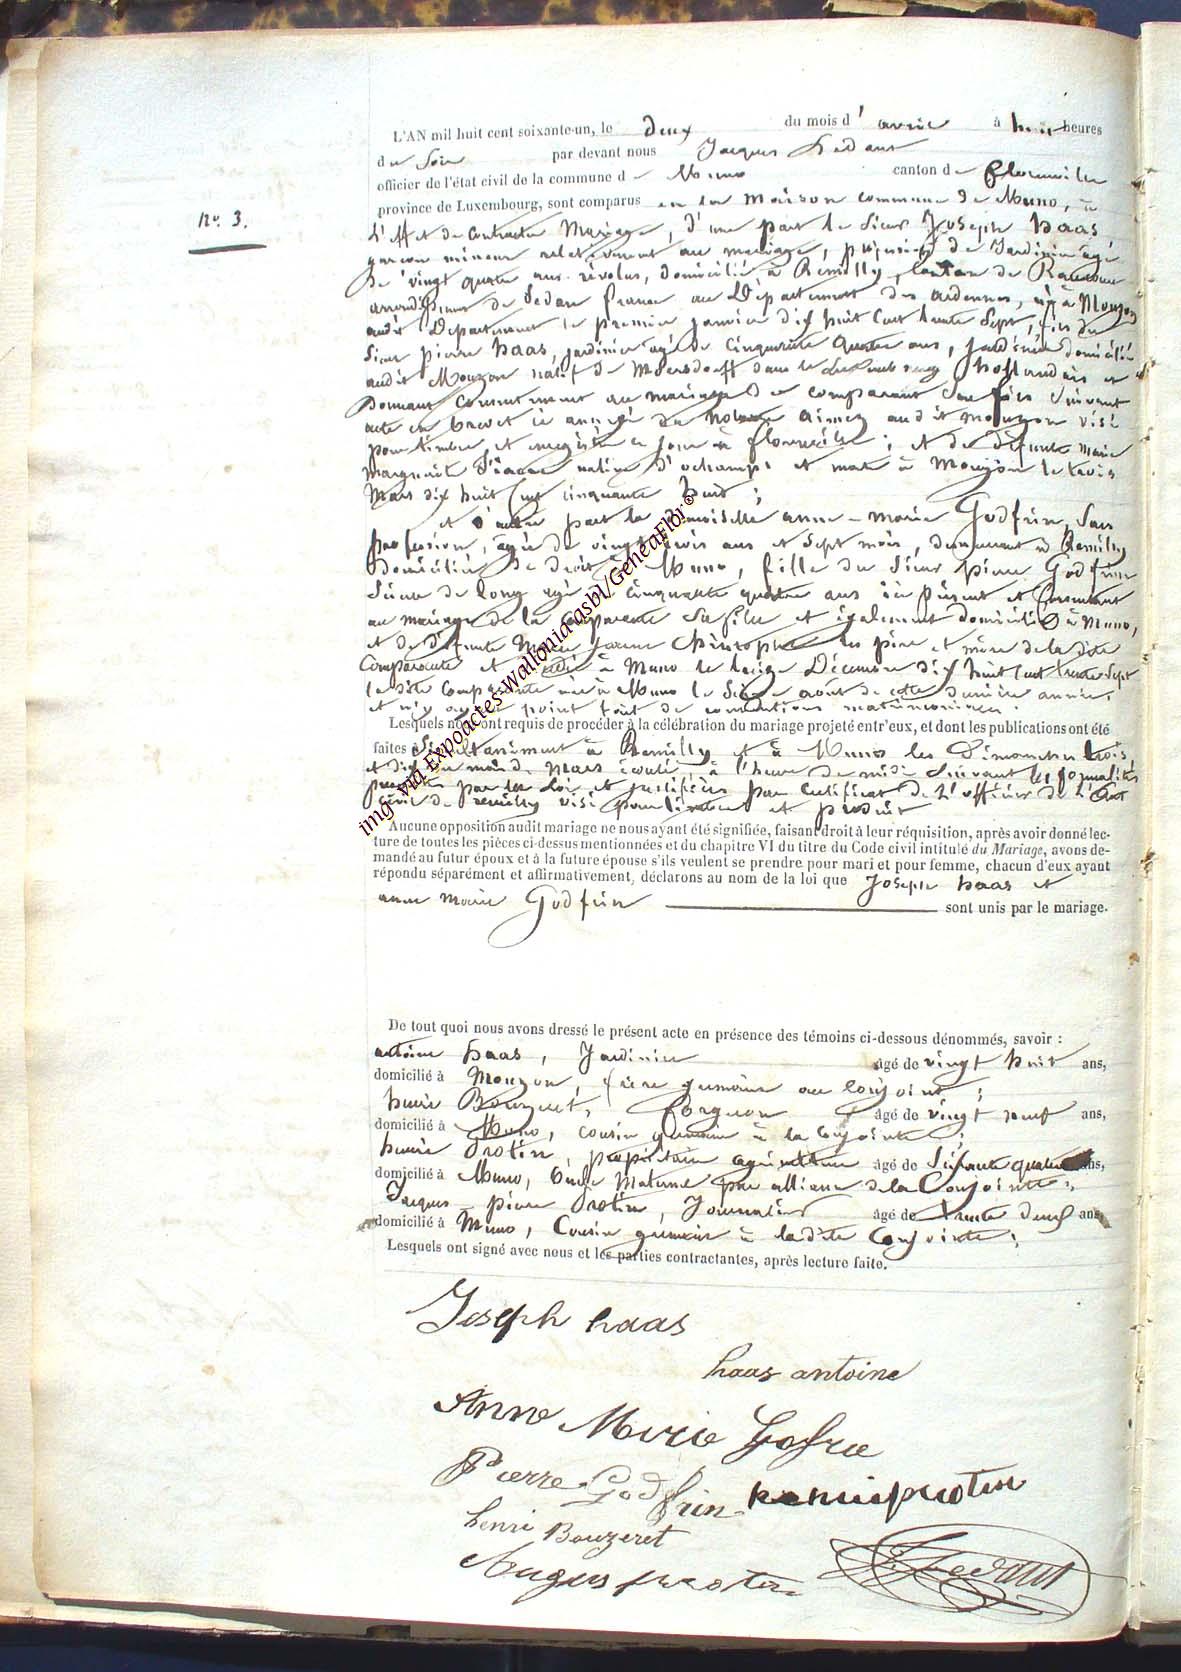 L'AN mil huit cent soixante-un, le deux du mois d' avril à huit heures
du soir par devant nous Jacques
officier de l'état civil de la commune de Muno canton de Florenville
province de Luxembourg, sont comparus en la maison commune de Muno, à
N°. 3.
l'effet de contracter Mariage, d'une part le sieur Joseph haas
garçon mineur relativement au mariage, profession de Jardinier âgé
de vingt quatre ans révolus, domicilié à Remilly, Canton de Raucourt
arrondissement de Sedan france au Département des ardennes, né à Mouzon
audit Département le premier janvier dix huit cent trente Sept, fils du
Sieur pierre haas, jardinier âgé de cinquante quatre ans, domicilié
audit Mouzon natif de dans le hollandais et
donnant consentement au mariage du comparant Son fils suivant
acte en brevet ci annexé du notaire audit mouzon visé
pour timbre et enregistré ce jour à florenville ; et de défunte marie
Marguerite native d'ochamps et morte à Mouzon le trois
Mars dix huit Cent cinquante huit ;
et d'autre part la Demoiselle anne-marie Godfrin, Sans
profession, âgée de vingt trois ans et Sept mois, demeurant à Remilly
domiciliée de droit à Muno, fille du Sieur pierre Godfrin
Scieur de long âgé de cinquante quatre ans ici présent et Consentant
au mariage de la comparante Sa fille et également domicilié à Muno,
et de défunte Marie Jeanne Christophe les père et mère de la dite
Comparante et à Muno le treize Décembre dix huit Cent trente Sept
la dite Comparante née à Muno le Seize août de cette dernière année,
et n'y ayant point fait de conventions matrimoniales.
Lesquels nous ont requis de procéder à la célébration du mariage projeté entr'eux, et dont les publications ont été
faites Simultanément à Remilly et à Muno les Dimanches trois,
et dix du mois de Mars écoulé, à l'heure de midi Suivant les formalités
prescrites par la Loi et justifiées par Certificat de l'officier de l'Etat
Civil de remilly visé pour timbre et produit
Aucune opposition audit mariage ne nous ayant été signifiée, faisant droit à leur réquisition, après avoir donné lec-
ture de toutes les pièces ci-dessus mentionnées et du chapitre VI du titre du Code civil intitulé du Mariage, avons de-
mandé au futur époux et à la future épouse s'ils veulent se prendre pour mari et pour femme, chacun d'eux ayant
répondu séparément et affirmativement, déclarons au nom de la loi que Joseph haas et
anne marie Godfrin sont unis par le mariage.
De tout quoi nous avons dressé le présent acte en présence des témoins ci-dessous dénommés, savoir :
antoine haas, Jardinier âgé de vingt huit ans,
domicilié à Mouzon, frère germain au Conjoint ;
henri Bouzeret, forgeron âgé de vingt neuf ans,
domicilié à Muno, cousin germain à la Conjointe ;
henri Protin, propriétaire agriculteur âgé de Soixante quatre ans,
domicilié à Muno, Oncle Maternel par alliance de la Conjointe ;
Jacques pierre Protin, Journalier âgé de trente deux ans
domicilié à Muno, Cousin germain à la dite Conjointe ;
Lesquels ont signé avec nous et les parties contractantes, après lecture faite.
Joseph haas
haas antoine
Anne Marie Gofrie
Pierre Godfrin
henri Bouzeret
img via Expoactes-Wallonia asbl/GeneaFlor©